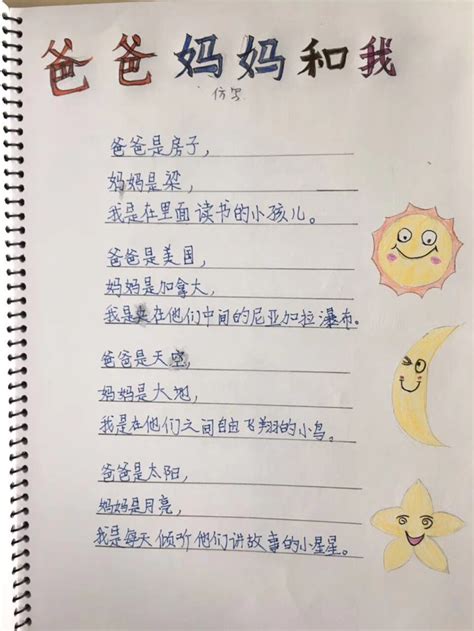 爸爸妈妈和我
仿写
爸爸是房子，
妈妈是梁，
我是在里面读书的小孩儿。
爸爸是美国，
妈妈是加拿大，
我是夹在他们中间的尼亚加拉瀑布。
爸爸是天空，
妈妈是大地，
我是在他们之间自由飞翔的小鸟。
爸爸是太阳，
妈妈是月亮，
我是每天倾听他们讲故事的小星星。